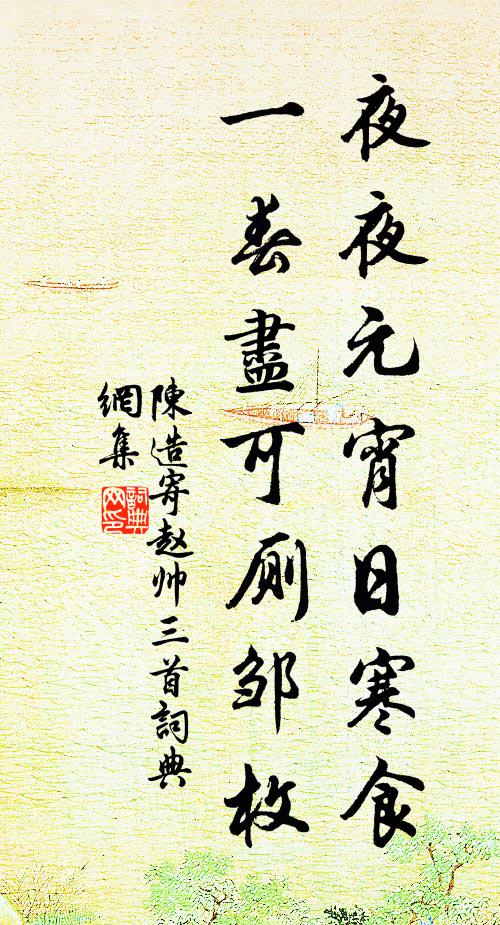 夜夜元宵日寒食
一春盡可厠邹枚
陳造寄赵帅三首詞典
網集
詞典
网印